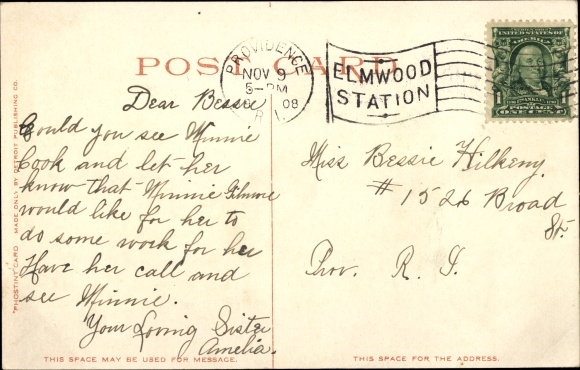 POST CARD
PROVIDENCE
NOV 9
5-PM
08
R.I.
ELMWOOD
STATION
UNITED STATES OF
AMERICA
FRANKLIN
POSTAGE
1 ONE CENT 1
"PHOSTINT CARD" MADE ONLY BY DETROIT PUBLISHING CO.
Dear Bessie
Could you see Minnie
Cook and let her
know that Minnie Gilmore
would like for her to
do some work for her
Have her call and
see Minnie.
Your Loving Sister
Amelia.
Miss Bessie Hilkeny.
# 1526 Broad
St.
Prov. R. I.
THIS SPACE MAY BE USED FOR MESSAGE.
THIS SPACE FOR THE ADDRESS.